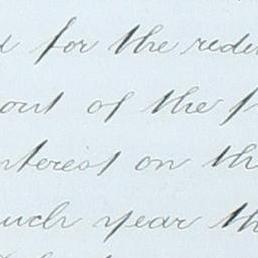 for the
out of the
interest on the
such year the